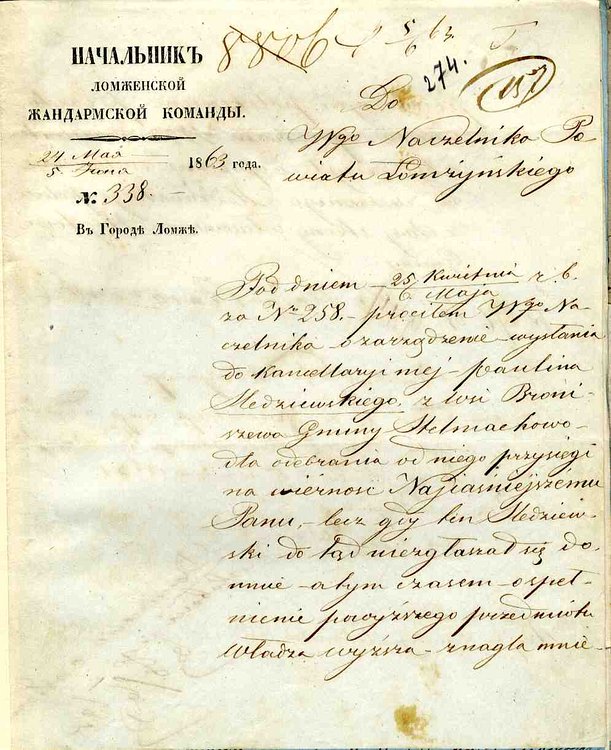 НАЧАЛЬНИКЪ
ЛОМЖЕНСКОЙ
ЖАНДАРМСКОЙ КОМАНДЫ.
24 Мая
5 Іюня
1863 года.
№ 338.
Въ Городѣ Ломжѣ.
8806
5/6 63.
274.
157
Do
Wgo Naczelnika Po-
wiatu Łomżyńskiego
Pod dniem 25 Kwietnia r. b.
6 Maja
za Nr 258. prosiłem Wgo Na-
czelnika o zarządzenie wysłania
do kancellaryi mej Paulina
Sledziewskiego z wsi Broni-
szewa Gminy Stelmachowo
dla odebrania od niego przysięgi
na wierność Najjaśniejszemu
Panu, lecz gdy ten Sledziew-
ski do tąd niezgłaszał się do
mnie a tym czasem o speł-
nienie powyższego przedmiotu
Władza wyższa znagla mnie